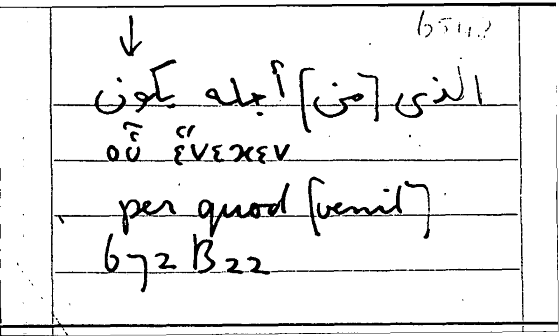 6542
↓
الذى [من] أجله يكون
οὗ ἕνεκεν
per quod [venit]
672 B22